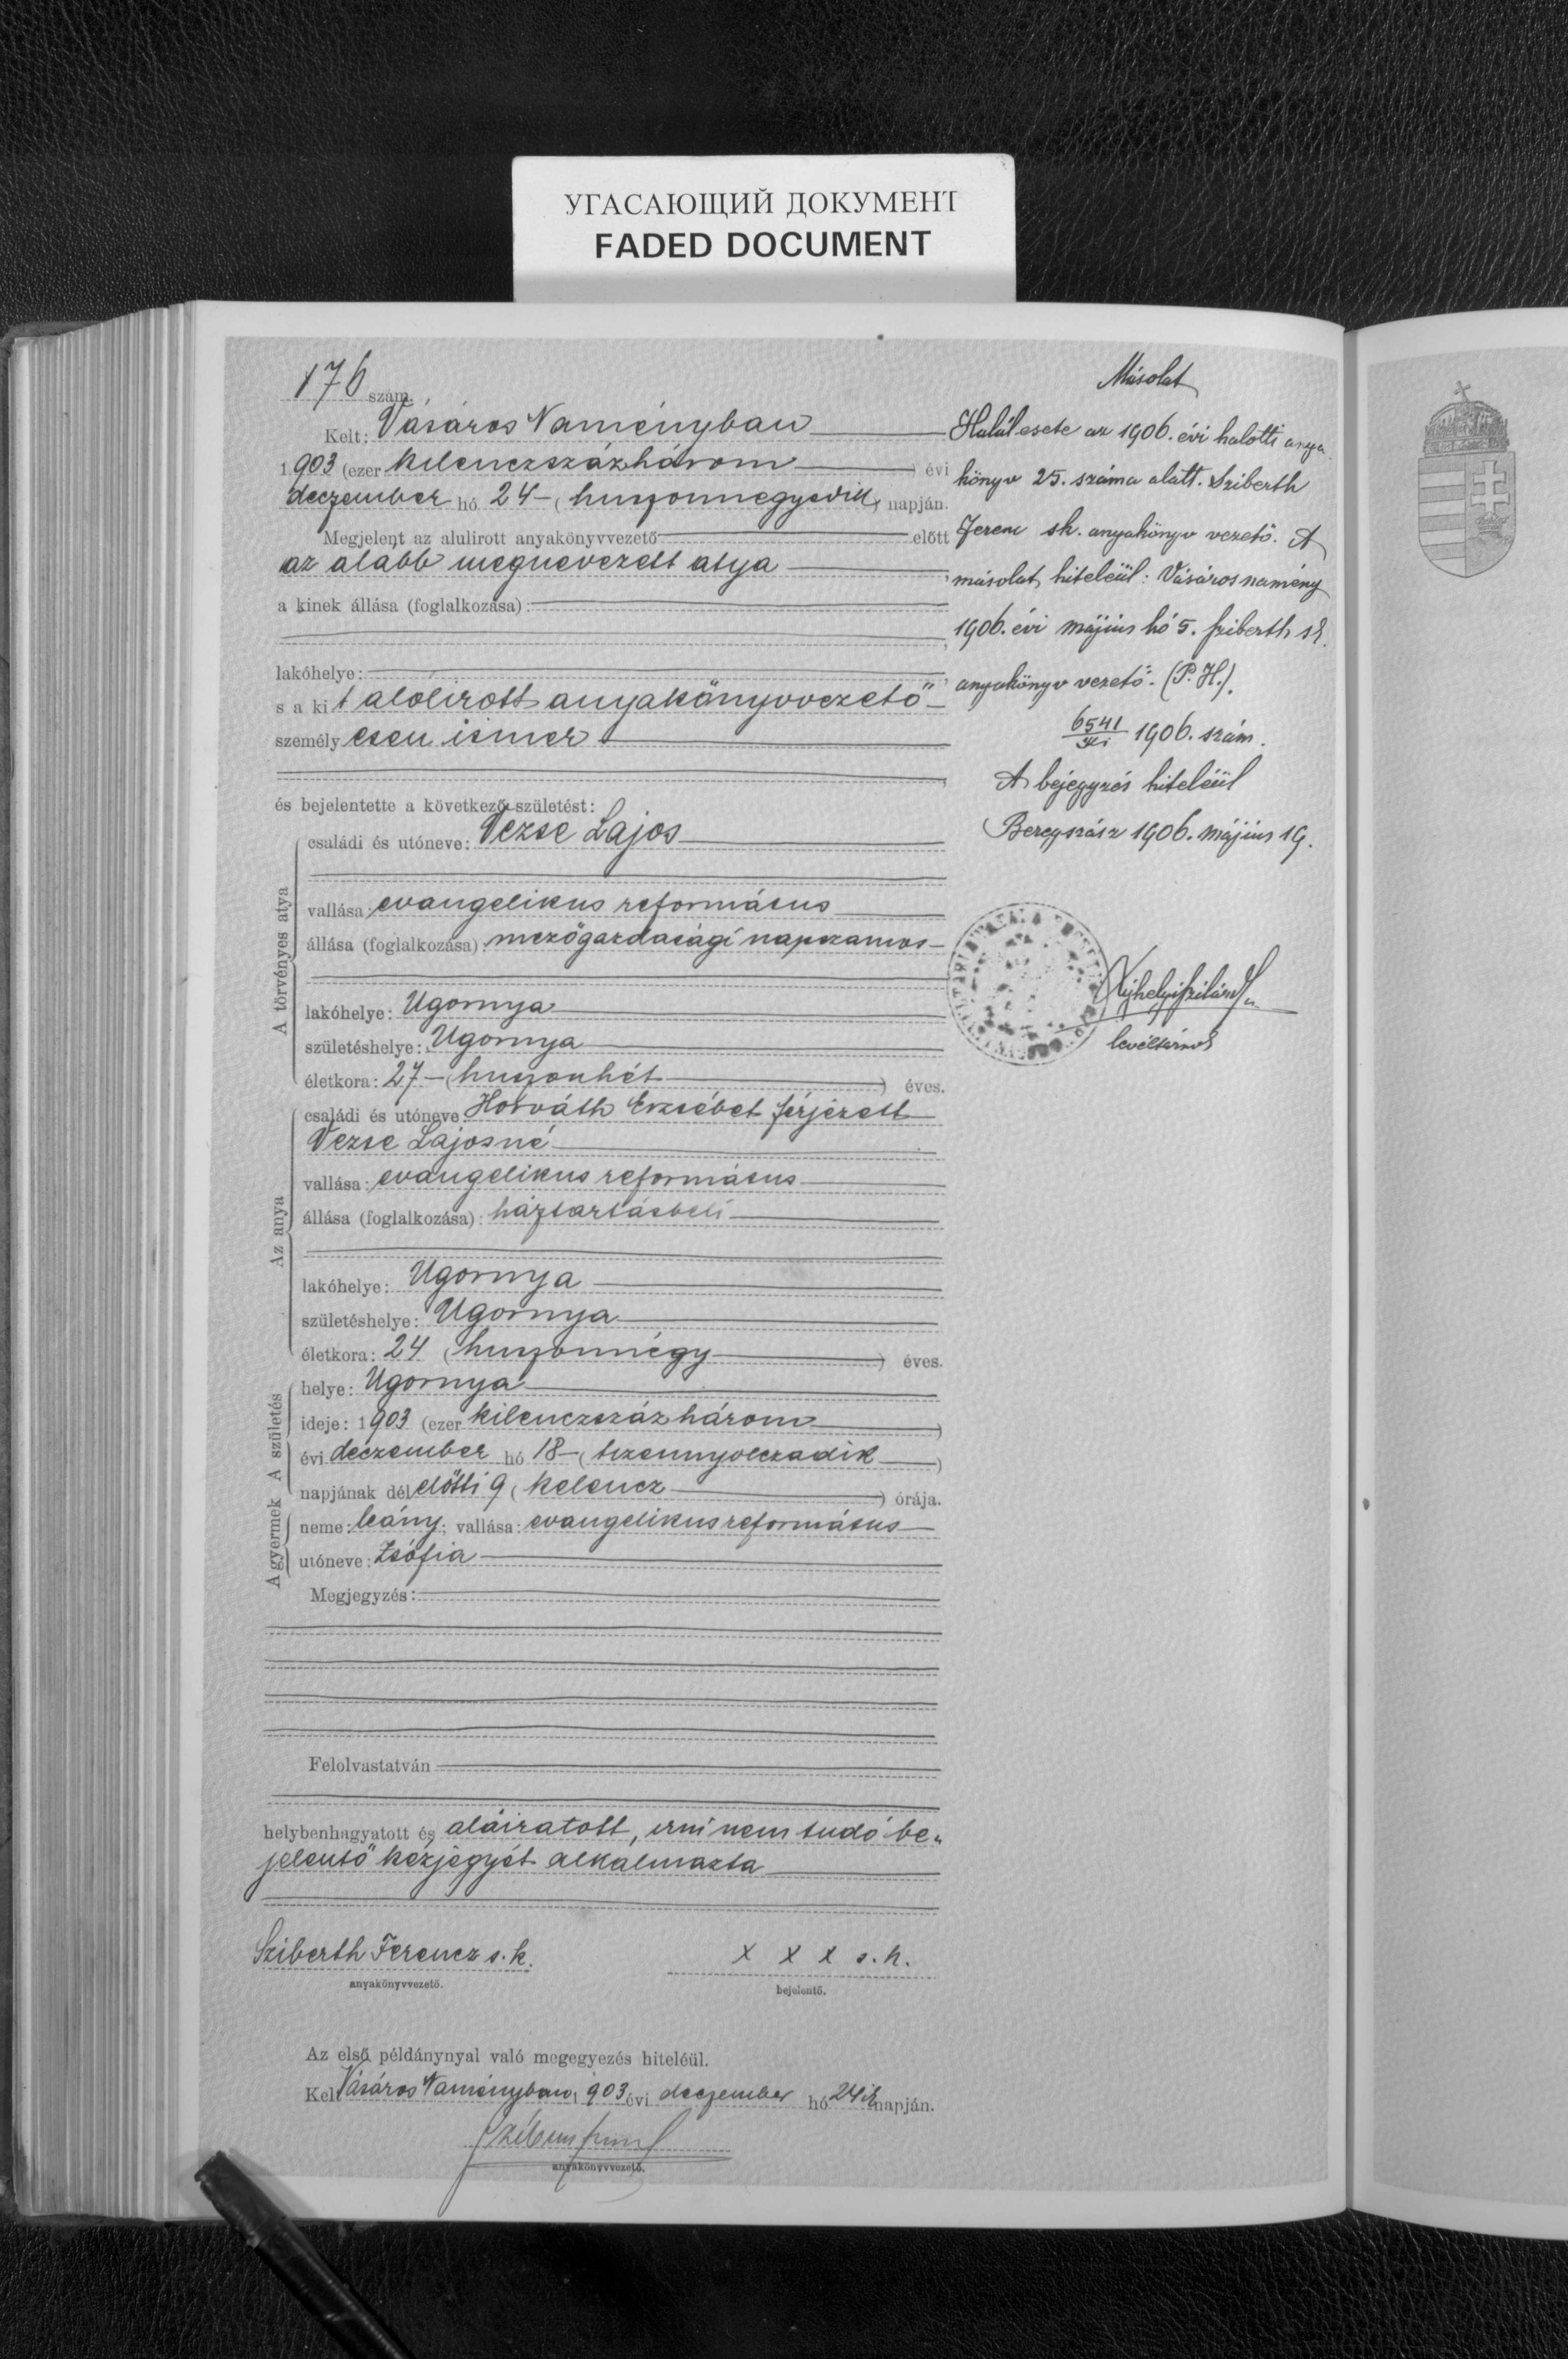 УГАСАЮЩИЙ ДОКУМЕНТ
FADED DOCUMENT
176 szám.
Kelt: Vásáros Naményban
1903 (ezer kilenczszázhárom) évi
deczember hó 24 (huszonnegyedik) napján.
Megjelent az alulirott anyakönyvvezető előtt
az alább megnevezett atya
a kinek állása (foglalkozása):
lakóhelye:
s a kit alólirott anyakönyvvezető
személyesen ismer
és bejelentette a következő születést:
A törvényes atya
családi és utóneve: Vezse Lajos
vallása: evangelikus református
állása (foglalkozása): mezőgazdasági napszamos
lakóhelye: Ugornya
születéshelye: Ugornya
életkora: 27 (huszonhét) éves.
Az anya
családi és utóneve: Horváth Erzsébet férjezett
Vezse Lajosné
vallása: evangelikus református
állása (foglalkozása): háztartásbeli
lakóhelye: Ugornya
születéshelye: Ugornya
életkora: 24 (huszonnégy) éves.
A születés
helye: Ugornya
ideje: 1903 (ezer kilenczszázhárom)
évi deczember hó 18 (tizennyolczadik)
napjának délelőtti 9 (kelencz) órája.
A gyermek
neme: leány; vallása: evangelikus református
utóneve: Zsófia
Megjegyzés:
Felolvastatván
helybenhagyatott és aláiratott, irni nem tudó be„
jelentő kézjegyét alkalmazta
Sziberth Ferencz s.k.
anyakönyvvezető.
x x x s.k.
bejelentő.
Az első példánynyal való megegyezés hiteléül.
Kelt Vásáros Naményban, 1903 évi deczember hó 24ik napján.
anyakönyvvezető.
Másolat
Halálesete az 1906. évi halotti anya
könyv 25. száma alatt. Sziberth
Ferenc sk. anyakönyv vezető. A
másolat hiteléül: Vásárosnamény
1906. évi május hó 5. Sziberth sk.
anyakönyv vezető. (P. H.).
6541/ki 1906. szám.
A bejegyzés hiteléül
Beregszász 1906. május 19.
Ujhelyi Szilárd
levéltárnok